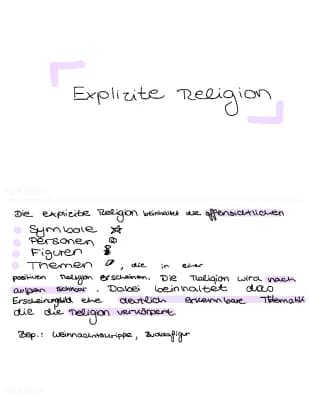 Explizite Religion
Die explizite Religion beinhaltet die offensichtlichen
Symbole
Personen
Figuren
Themen, die in einer
positiven Religion erscheinen. Die Religion wird nach
außen sichtbar. Dabei beinhaltet das
Erscheinungsbild eine deutlich erkennbare Thematik
die die Religion verkörpert.
Bsp.: Weihnachtskrippe, Buddafigur